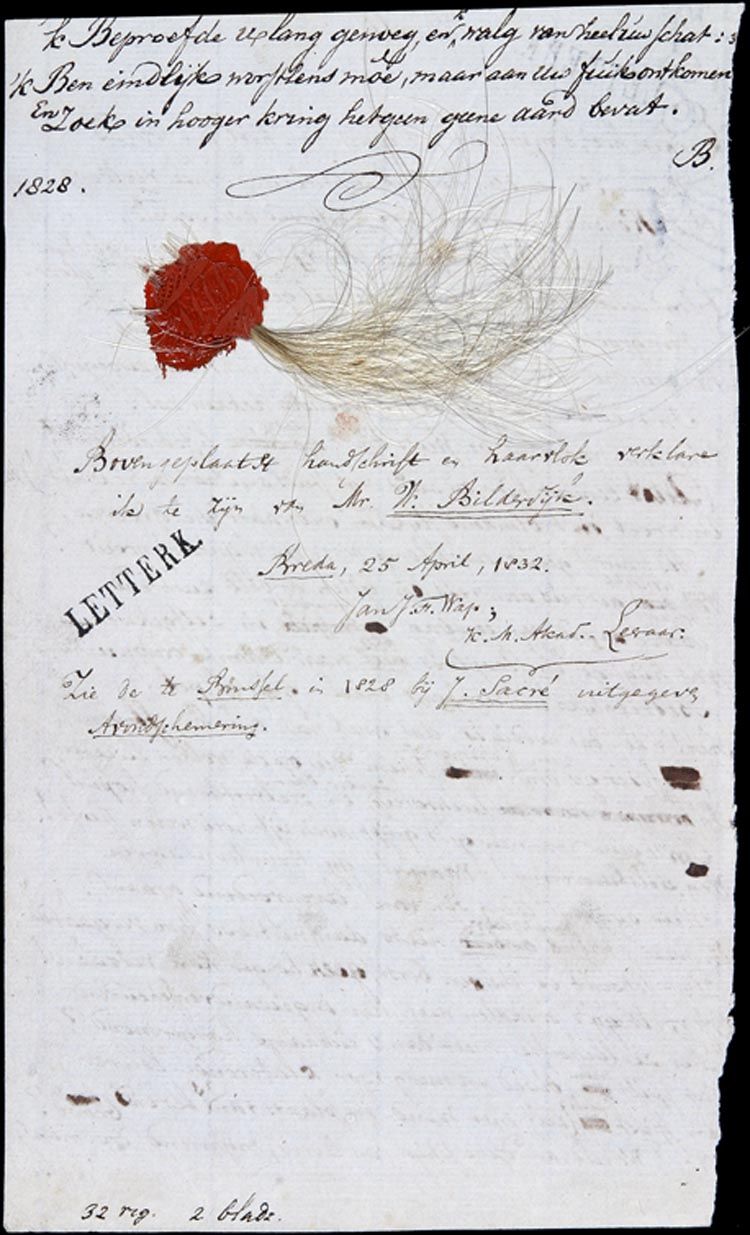 'k Beproefde u lang genoeg, en 'k walg van heel uw schat:
'k Ben eindlijk worstlens moê, maar aan uw fuik ontkomen
En Zoek in hooger kring hetgeen geene aard bevat.
B.
1828.
Bovengeplaatst handschrift en haarvlok verklare
ik te zijn van Mr. W. Bilderdijk.
LETTERK.
Breda, 25 April, 1832.
Jan J. F. Wap,
K. M. Akad. Leeraar.
Zie de te Brussel in 1828 bij J. Sacré uitgegeven
Avondschemering.
32 reg. 2 bladz.